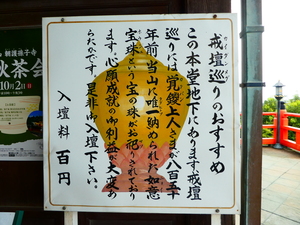 戒壇巡りのおすすめ
カイダンメグ
この本堂地下にあります戒壇
巡りには覚鑁上人さまが八百五十
年前、当山に唯一納められた如意
宝珠という宝の珠がお祀りされており
ます。心願成就の御利益が大変あ
らたかです。是非御入壇下さい。
入壇料 百円
朝護孫子寺
秋茶会
10月2日